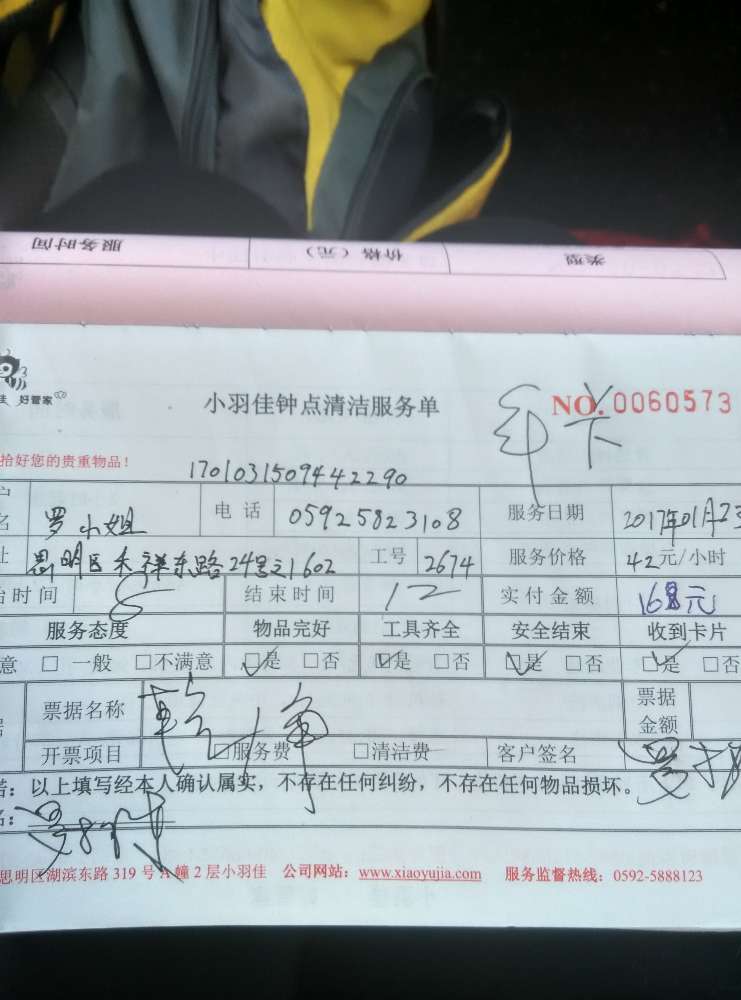 服务时间 价格（元） 类型
佳 好管家
小羽佳钟点清洁服务单
NO. 0060573
拾好您的贵重物品！
1701031509442290
名 罗小姐 电话 05925823108 服务日期 2017年01月23
址 思明区禾祥东路24号之1602 工号 2674 服务价格 42元/小时
始时间 8 结束时间 12 实付金额 168元
服务态度 物品完好 工具齐全 安全结束 收到卡片
意 □一般 □不满意 ☑是 □否 ☑是 □否 ☑是 □否 ☑是 □否
票据名称 票据金额
开票项目 □服务费 □清洁费 客户签名
：以上填写经本人确认属实，不存在任何纠纷，不存在任何物品损坏。
思明区湖滨东路 319 号 A 幢 2 层小羽佳 公司网站：www.xiaoyujia.com 服务监督热线：0592-5888123